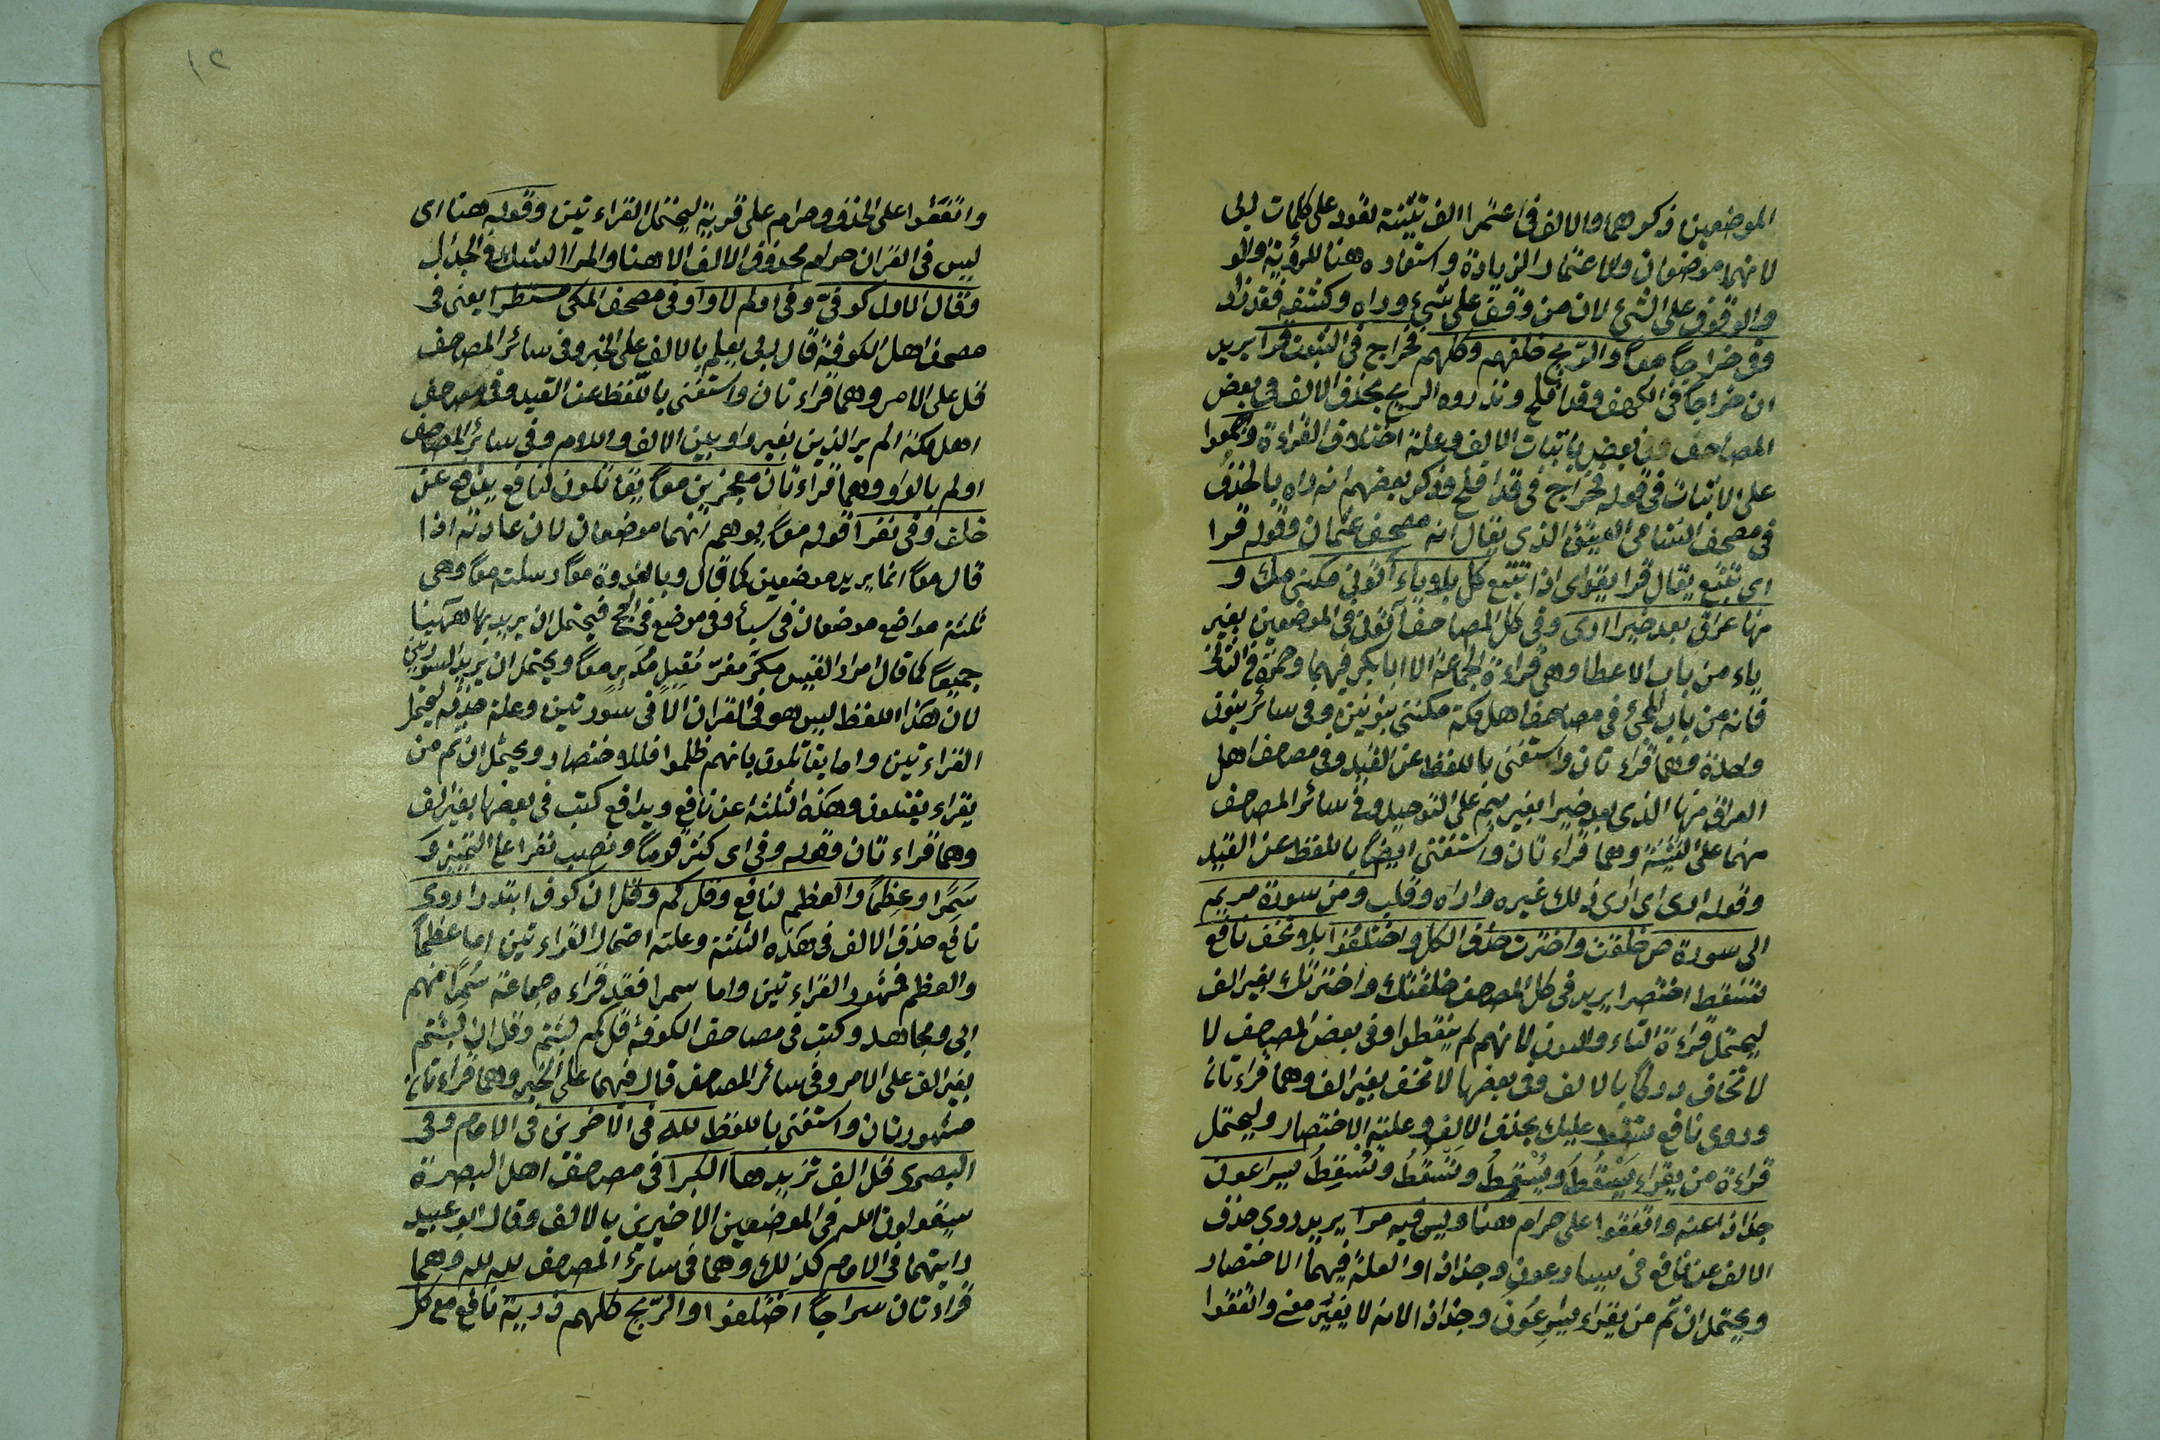 الموضعين ذكرهما والالف في اعتمرا الف تثنية تعود على كلمات لبلى
لانهما موضعان والاعتماد الزيادة واستعاده هنا للرؤية والو
والوقوف على الشيء لان من وقف على شيء وراه وكشفه فقد زاد
وفي خراجا معا والريح خلفهم وكلهم فخراج في الثبوت قرا يريد
ان خراجا في الكهف وقد افلح وتذروه الريح بحذف الالف في بعض
المصاحف وفي بعض باثبات الالف وعلة اختلاف القراءة واجمعوا
على الاثبات في قوله فخراج في قد افلح وذكر بعضهم انه راه بالحذف
في مصحف الشامي العتيق الذي يقال انه مصحف عثمان وقوله قرا
اي تتبع يقال قرا يقرا اي اذا تتبع كل بلا ياء اتوني مكنني مك و
منها عراق بعد خيرا ارى وفي كل المصاحف آتوني في الموضعين بغير
ياء من باب الاعطا وهي قراءة الجماعة الا ابا بكر فيهما وحمزة في الثاني
فانه من باب المجيء في مصاحف اهل مكة مكنني بنونين وفي سائر بنون
واحدة وهما قراء تان واستغنى باللفظ عن القيد وفي مصاحف اهل
العراق منها الذي بعد خيرا بغير ميم على التوحيد وفي سائر المصاحف
منهما على التثنية وهما قراء تان واستغنى ايضا باللفظ عن القيد
وقوله ارى اي ارى ذلك غيره واراه وقلب ومن سورة مريم
الى سورة ص خلقت واخترت حذف الكل واختلفوا بلا تخف نافع
تسقط اختصرا يريد في كل المصحف خلقتك واخترتك بغير الف
ليحتمل قراءة التاء والنون لانهم لم ينقطوا وفي بعض المصاحف لا
لا تخاف دركا بالالف وفي بعضها لا تخف بغير الف وهما قراء تان
وروى نافع تسقط عليك بحذف الالف وعلته الاختصار وليحتمل
قراءة من يقراء يَسَّقُط ويُسْقِطُ وتَسْقُطُ وتُسْقِطُ يسرعون
جذاذا عنه واتفقوا على حرام هنا وليس فيه مرا يريد روى حذف
الالف عن نافع في يسارعون وجذاذا والعلة فيهما الاختصار
ويحتمل ان ثم من يقراء يسرعون وجذاذا لانه لا يغير معنى واتفقوا
١٢
واتفقوا على الحذف وحرام على قرية ليحتمل القراء تين وقوله هنا اي
ليس في القران حرام محذوف الالف الا هنا والمرا الشك والجدال
وقال الاول كوفي وفي اولم لا واو في مصحف المكي مستطرا يعني في
مصحف اهل الكوفة قال ربي يعلم بالالف على الخبر وفي سائر المصاحف
قل على الامر وهما قراء تان واستغنى باللفظ عن القيد وفي مصاحف
اهل مكة الم ير الذين بغير واو بين الالف واللام وفي سائر المصاحف
اولم بالواو وهما قراء تان معجزين معا يقاتلون لنافع يدفع عن
خلف وفي نفرا قوله معا يوهم انهما موضعان لان عادته اذا
قال معا انما يريد موضعين كما قال وبالغدوة معا رسلت معا وهي
ثلثة مواضع موضعان في سبأ وفي موضع في الحج فيحتمل ان يريد بها ههنا
جميعا كما قال امرا القيس مكرّ مفرّ مُقبِل مُدبِر معا ويحتمل ان يريد السورتين
لان هذا اللفظ ليس هو في القران الا في سورتين وعلة حذفه ليحتمل
القراء تين واما يقاتلون بانهم ظلموا فللاختصار ويحتمل ان ثم من
يقراء يقتلون وهذه الثلثة عن نافع ويدافع كتب في بعضها بغير الف
وهما قراء تان وقوله وفي اي كثر قوما ونصب نفرا على التمييز و
سَمَرا وعظمًا والعظم لنافع وقل كم وقل ان كوف ابتدرا روى
نافع حذف الالف في هذه الثلثة وعلته احتمال القراء تين اما عظما
والعظم فمشهور القراء تين واما سمرا فقد قراءه جماعة سُمَّرا منهم
ابي ومجاهد وكتب في مصاحف الكوفة قل كم لبثتم وقل ان لبثتم
بغير الف على الامر وفي سائر المصاحف قال فيهما على الخبر وهما قراء تان
مشهورتان واستغنى باللفظ لله في الاخرين في الامام وفي
البصرى قل الف تزيدها الكبرا في مصاحف اهل البصرة
سيقولون الله في الموضعين الاخيرين بالالف وقال ابو عبيد
رايتهما في الامام كذلك وهما في سائر المصحف لله لله وهما
قراءتان سراجا اختلفوا والريح كلهم ذرية نافع مع كل